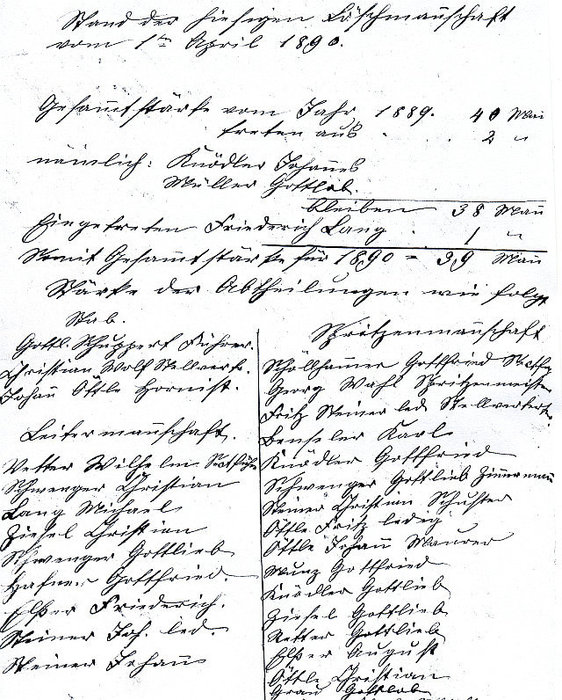 Stand der hiesigen Löschmannschaft
vom 1ten April 1890.
Gesammtstärke vom Jahr 1889. 40 Man
treten aus . . 2 "
nämlich: Knödler Johannes
Müller Gottlob.
bleiben 38 Mann
Eingetreten Friederich Lang . 1 "
Somit Gesammtstärke für 1890 = 39 Mann
Stärke der Abtheilungen wie folgt
Stab.
Gottl. Schuppert Führer.
Christian Wolf Stellvertr.
Johann Ottle Hornist.
Leitermannschaft.
Vetter Wilhelm Rottfüh
Schwenger Christian
Lang Michael
Ziesel Christian
Schwenger Gottlieb
Hafner Gottfried.
Elser Friederich.
Steiner Joh. led.
Steiner Johann
Spritzenmannschaft
Schöllhammer Gottfried Rottfü
Georg Wahl Spritzenmeister
Fritz Steiner led. Stellvertret.
Benseler Karl
Knödler Gottfried
Schwenger Gottlieb Zimmermann
Steiner Christian Schuster
Ottle Fritz ledig
Ottle Johann Maurer
Munz Gottfried
Knödler Gottlieb
Ziesel Gottlieb
Vetter Gottlieb
Elser August
Ottle Christian
Grau Gottlob